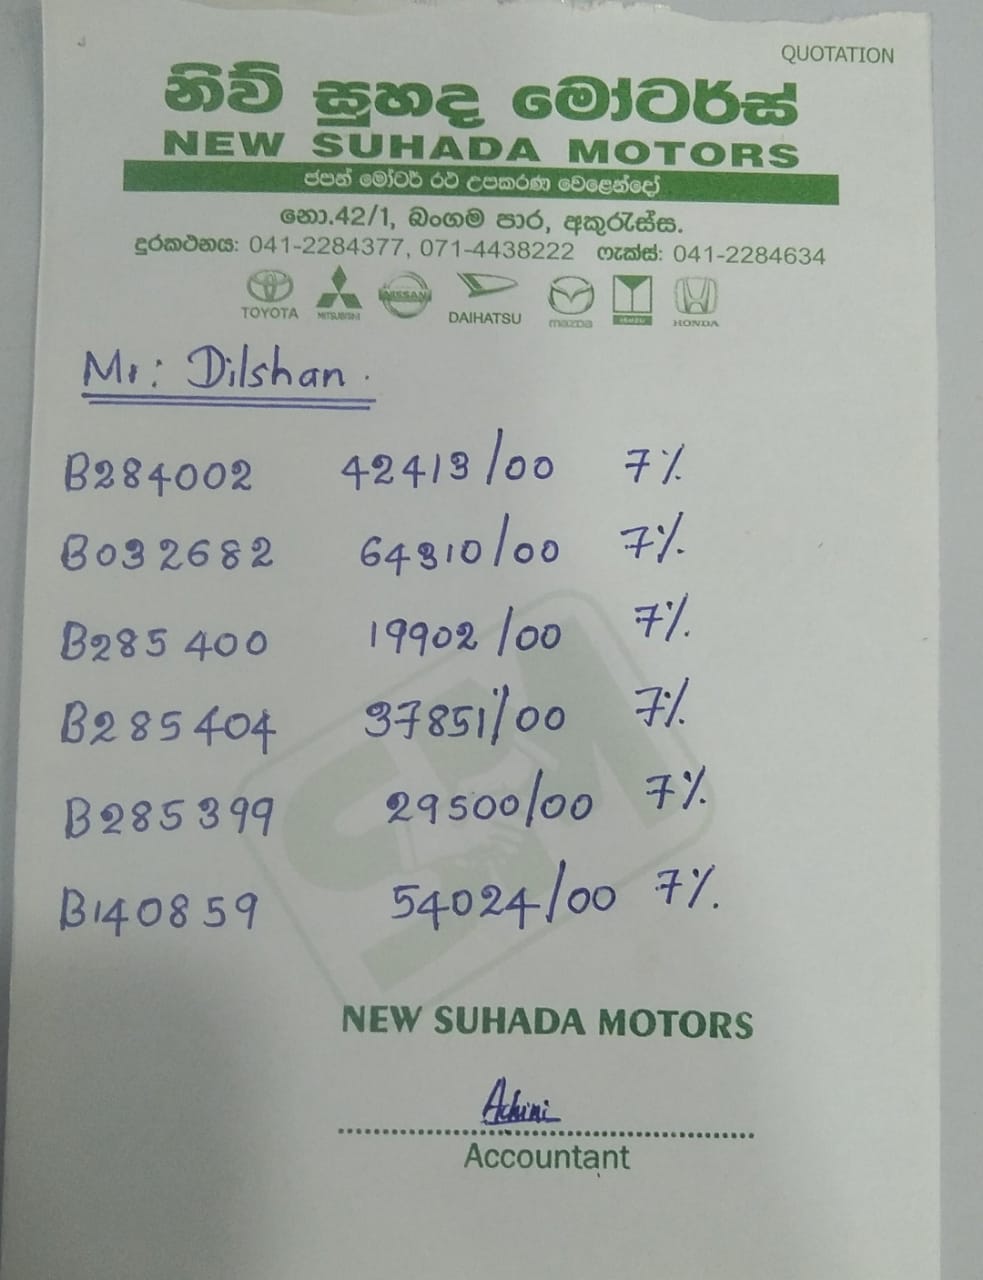 QUOTATION
නිව් සුහද මෝටර්ස්
NEW SUHADA MOTORS
ජපන් මෝටර් රථ උපකරණ වෙළෙන්දෝ
නො.42/1, බංගම පාර, අකුරැස්ස.
දුරකථනය: 041-2284377, 071-4438222 ෆැක්ස්: 041-2284634
TOYOTA MITSUBISHI NISSAN DAIHATSU mazda ISUZU HONDA
Mr: Dilshan.
B284002 42413/00 7%
B032682 64310/00 7%
B285400 19902/00 7%
B285404 37851/00 7%
B285399 29500/00 7%
B140859 54024/00 7%
SM
NEW SUHADA MOTORS
Achini
Accountant